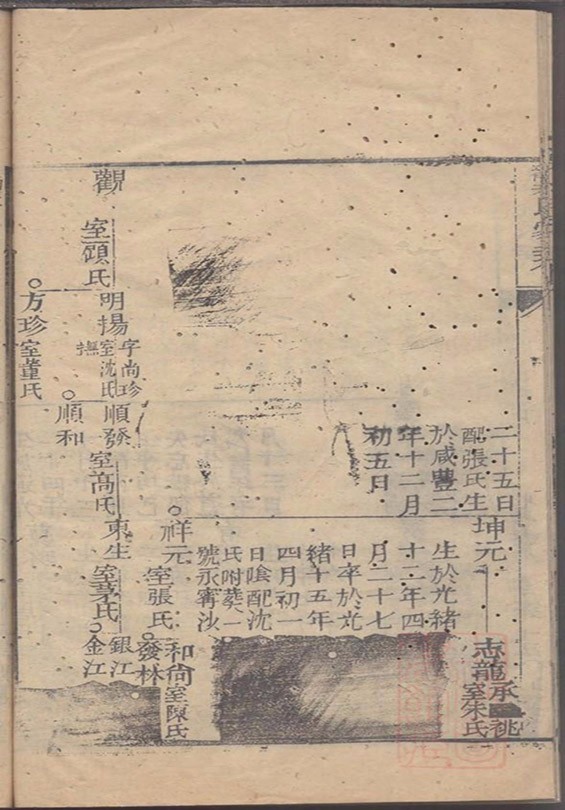 二十五日
配張氏生
於咸豐二
年十二月
初五日
坤元
生於光緒
十二年四
月二十七
日卒於光
緒十五年
四月初一
日陰配沈
氏咐葬一
號永寗
志龍
承祧
室朱氏
祥元
室張氏
和尙
室陳氏
發林
觀
室顧氏
明揚
字尚珍
室沈氏
撫
順發
室高氏
東生
室茅氏
銀江
金江
順和
方珍
室董氏